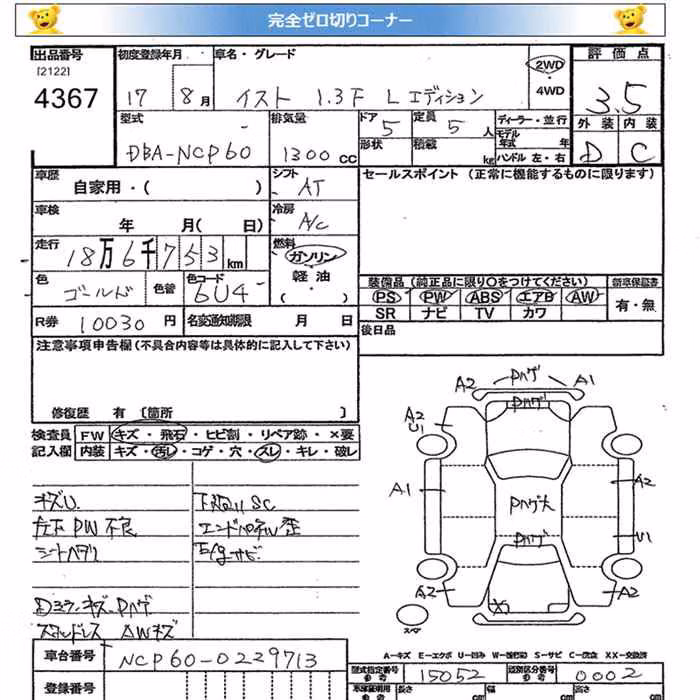 完全ゼロ切りコーナー
出品番号 初度登録年月 車名・グレード 2WD 評価点
[2122]
4367 17 8月 イスト 1.3F Lエディション 4WD 3.5
型式 排気量 ドア 定員 ディーラー・並行 外装 内装
DBA-NCP60 1300CC 5 5人 モデル年式 年 D C
形状 積載 kg ハンドル 左・右
車歴 シフト セールスポイント (正常に機能するものに限ります)
自家用・( ) AT
車検 冷房
年 月( 日) A/C
走行 燃料
18万6千753km ガソリン
軽油
色 色替 色コード ・( )
ゴールド 6U4
装備品 (純正品に限り○をつけてください) 新車保証書
PS PW ABS エアB AW 有・無
SR ナビ TV カワ
R券 10030円 名変通知期限 月 日
後日品
注意事項申告欄 (不具合内容等は具体的に記入して下さい)
修復歴 有 [箇所 ]
検査員 FW キズ・飛石・ヒビ割・リペア跡・×要
記入欄 内装 キズ・汚レ・コゲ・穴・スレ・キレ・破レ
キズU. 下廻りSC
左下PW不良 エンドパネルW歪
シートヘタリ
Dミラーキズ.Pハゲ
ステンドレス AWキズ
A2 Pハゲ A1
Pハゲ
A2
U1
A1 A2
Pハゲ大
U1
Pハゲ
A2 A2
X1
スペア
A-キズ E-エクボ U-凹み W-補修跡 S-サビ C-腐食 XX-交換済
車台番号 NCP60-0229713
型式指定番号 15052 類別区分番号 0002
登録番号
長さ cm 幅 cm 高さ cm